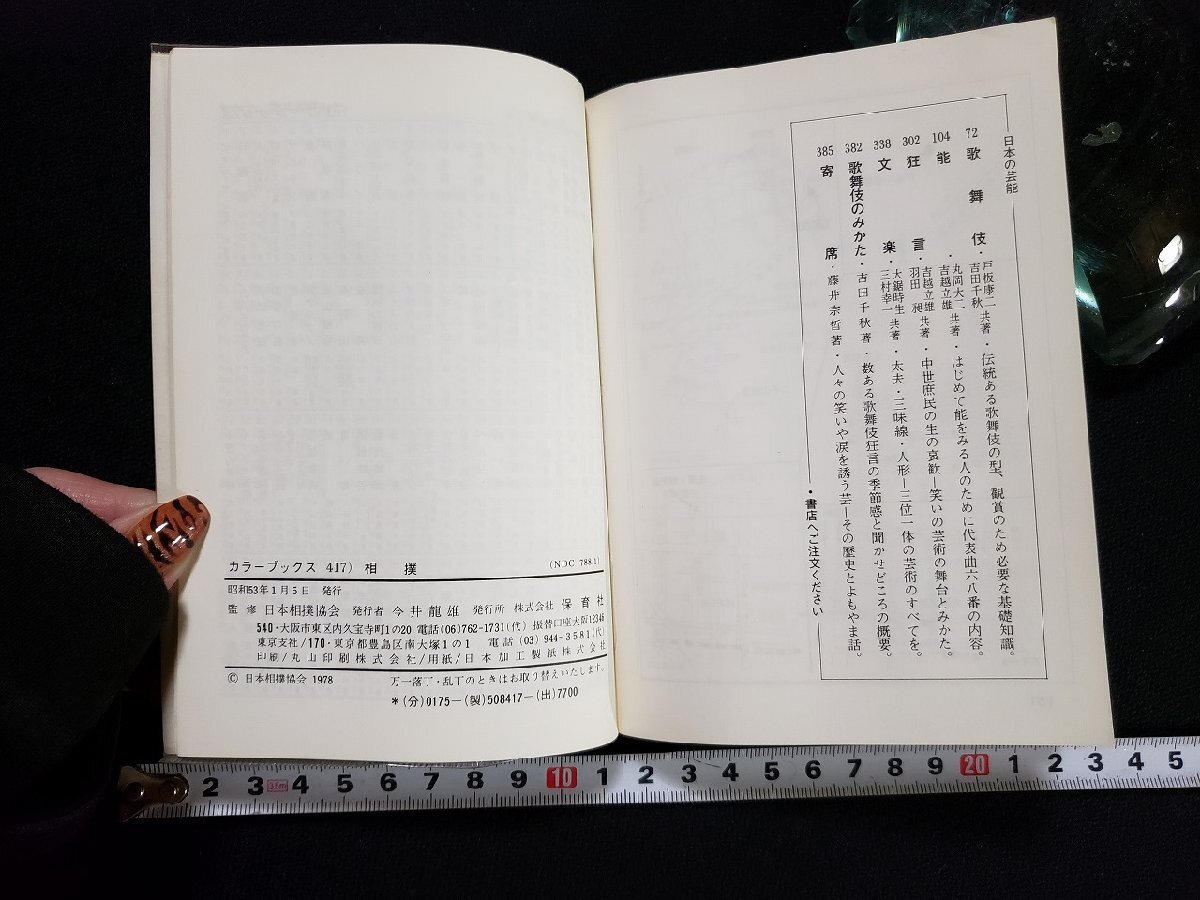 日本の芸能
72 歌舞伎・戸板康二 吉田千秋 共著・伝統ある歌舞伎の型、観賞のため必要な基礎知識。
104 能・丸岡大二 吉越立雄 共著・はじめて能をみる人のために代表曲六八番の内容。
302 狂言・吉越立雄 羽田昶 共著・中世庶民の生の哀歓―笑いの芸術の舞台とみかた。
338 文楽・大鋸時生 三村幸一 共著・太夫・三味線・人形―三位一体の芸術のすべてを。
382 歌舞伎のみかた・吉田千秋著・数ある歌舞伎狂言の季節感と聞かせどころの概要。
385 寄席・藤井宗哲著・人々の笑いや涙を誘う芸―その歴史とよもやま話。
・書店へご注文ください
カラーブックス 417) 相撲 (NDC 788.1)
昭和53年1月5日 発行
監修 日本相撲協会 発行者 今井龍雄 発行所 株式会社 保育社
540・大阪市東区内久宝寺町1の20 電話(06)762-1731(代) 振替口座大阪12346
東京支社/170・東京都豊島区南大塚1の1 電話 (03) 944-3581(代)
印刷/丸山印刷株式会社/用紙/日本加工製紙株式会社
© 日本相撲協会 1978 万一落丁・乱丁のときはお取り替えいたします。
*(分)0175-(製)508417-(出)7700
2 3 4 5 6 7 8 9 10 1 2 3 4 5 6 7 8 9 20 1 2 3 4 5